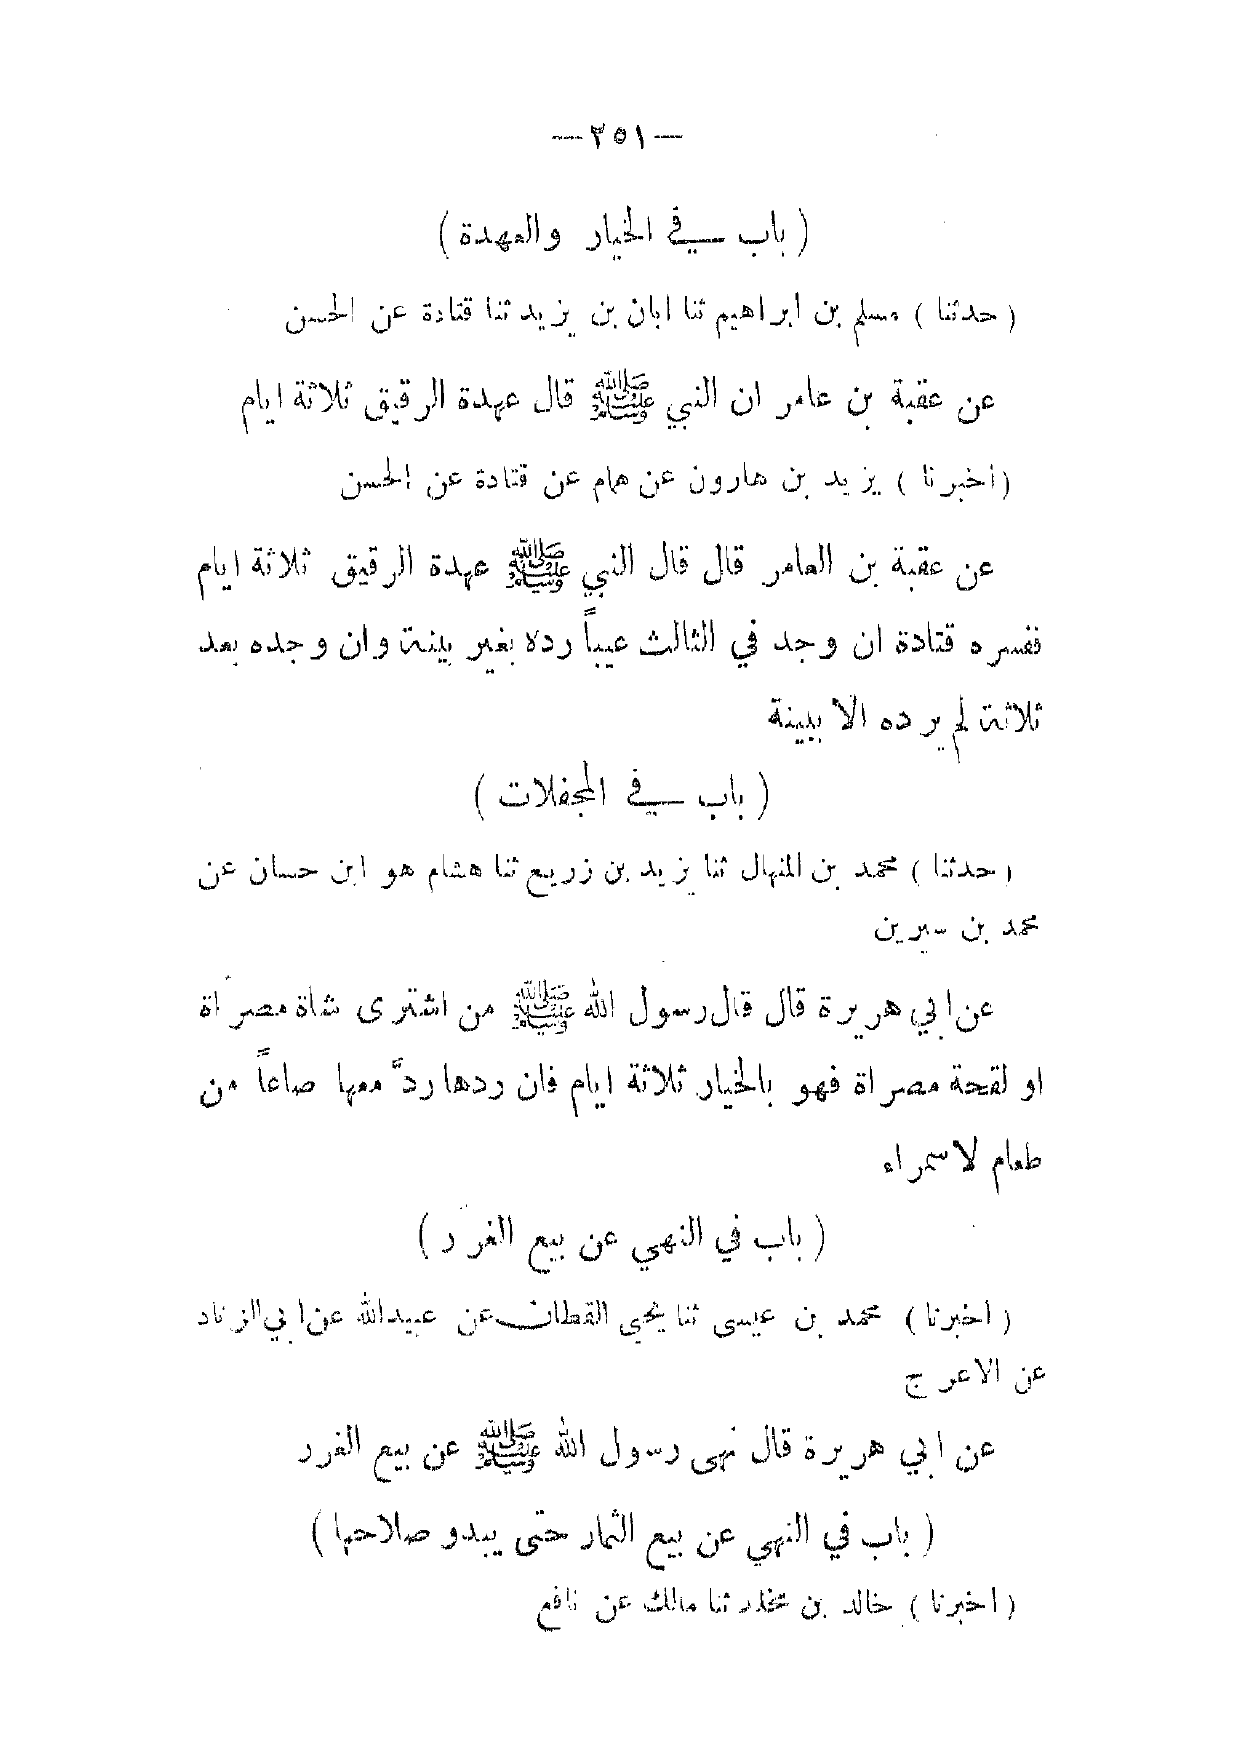 — ٢٥١ —
( باب في الخيار والعهدة )
( حدثنا ) مسلم بن ابراهيم ثنا ابان بن يزيد ثنا قتادة عن الحسن
عن عقبة بن عامر ان النبي ﷺ قال عهدة الرقيق ثلاثة ايام
( اخبرنا ) يزيد بن هارون عن همام عن قتادة عن الحسن
عن عقبة بن العامر قال قال النبي ﷺ عهدة الرقيق ثلاثة ايام
ففسره قتادة ان وجد في الثالث عيباً رده بغير بينة وان وجده بعد
ثلاثة لم يرده الا ببينة
( باب في المحفلات )
( حدثنا ) محمد بن المنهال ثنا يزيد بن زريع ثنا هشام هو ابن حسان عن
محمد بن سيرين
عن ابي هريرة قال قال رسول الله ﷺ من اشترى شاة مصراة
او لقحة مصراة فهو بالخيار ثلاثة ايام فان ردها ردَّ معها صاعاً من
طعام لا سمراء
( باب في النهي عن بيع الغرر )
( اخبرنا ) محمد بن عيسى ثنا يحيى القطان عن عبيدالله عن ابي الزناد
عن الاعرج
عن ابي هريرة قال نهى رسول الله ﷺ عن بيع الغرر
( باب في النهي عن بيع الثمار حتى يبدو صلاحها )
( اخبرنا ) خالد بن مخلد ثنا مالك عن نافع